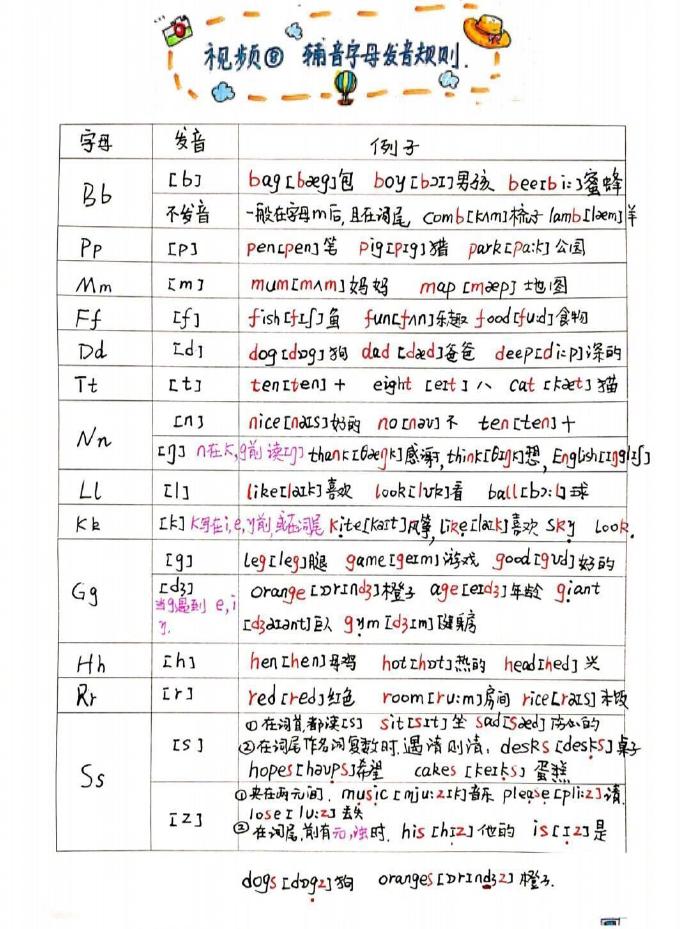 视频⑧ 辅音字母发音规则.
字母 发音 例子
Bb [b] bag[bæg]包 boy[bɔɪ]男孩 bee[bi:]蜜蜂
不发音 一般在字母m后,且在词尾 comb[kʌm]梳子 lamb[læm]羊
Pp [p] pen[pen]笔 pig[pɪg]猪 park[pa:k]公园
Mm [m] mum[mʌm]妈妈 map [mæp] 地图
Ff [f] fish[fɪʃ]鱼 fun[fʌn]乐趣 food[fu:d]食物
Dd [d] dog[dɒg]狗 dad [dæd]爸爸 deep[di:p]深的
Tt [t] ten[ten]十 eight [eɪt]八 cat [kæt]猫
Nn [n] nice[naɪs]好的 no[nəʊ]不 ten[ten]十
[ŋ] n在k,g前读[ŋ] thank[θæŋk]感谢,think[θɪŋk]想,English[ɪŋglɪʃ]
Ll [l] like[laɪk]喜欢 look[lʊk]看 ball[bɔ:l]球
Kk [k] k写在i,e,y前,或在词尾 kite[kaɪt]风筝,like[laɪk]喜欢 sky look.
Gg [g] leg[leg]腿 game[geɪm]游戏 good[gʊd]好的
[dʒ] orange [ɒrɪndʒ]橙子 age[eɪdʒ]年龄 giant
当g遇到 e,i
y. [dʒaɪənt]巨人 gym [dʒɪm]健身房
Hh [h] hen[hen]母鸡 hot[hɒt]热的 head[hed]头
Rr [r] red[red]红色 room[ru:m]房间 rice[raɪs]米饭
Ss [s] ①在词首,都读[s] sit[sɪt]坐 sad[sæd]伤心的
②在词尾作名词复数时,遇清则清: desks [desks]桌子
hopes[həʊps]希望 cakes [keɪks] 蛋糕
[z] ①夹在两元间, music [mju:zɪk]音乐 please[pli:z]请
lose[lu:z]丢失
②在词尾,前有元,浊时. his [hɪz]他的 is[ɪz]是
dogs[dɒgz]狗 oranges[ɒrɪndʒɪz]橙子.